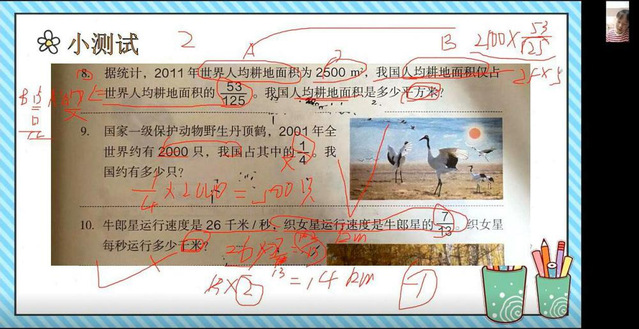 小测试
2
A
B
2500×53/125
8. 据统计，2011年世界人均耕地面积为2500 m²，我国人均耕地面积仅占
世界人均耕地面积的53/125。我国人均耕地面积是多少平方米？
9. 国家一级保护动物野生丹顶鹤，2001年全
世界约有2000只，我国占其中的1/4。我
国约有多少只？
1/4×2000=500只
10. 牛郎星运行速度是26千米/秒，织女星运行速度是牛郎星的7/13。织女星
每秒运行多少千米？
=14km
-1